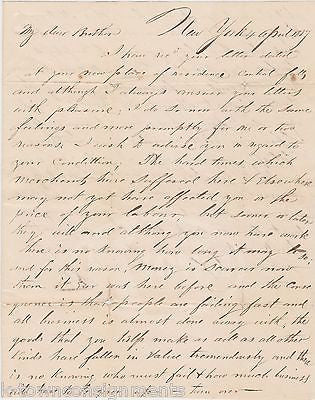 New York 4 April 1837
My dear Brother
I have recd your letter dated
at your new place of residence Central falls
and although I always answer your letters
with pleasure, I do so now with the same
feelings and more promptly for one or two
reasons, I wish to advise you in regard to
your Condition, The hard times which
Merchants have suffered here & Elsewhere
may not yet have affected you or the
price of your labour, but sooner or later
they will and although you now have work
there is no knowing how long it may
and for this reason, Money is Scarcer now
than it ever was here before and the Conse
quence is that people are failing fast and
all business is almost done away with, the
goods that you help make as well as all other
kinds have fallen in Value tremendously and there
is no knowing who must fail & how much business
over
iotownconsignments